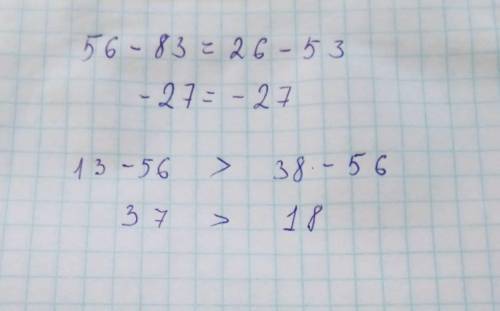 56 - 83 = 26 - 53
- 27 = - 27
13 - 56 > 38 - 56
37 > 18